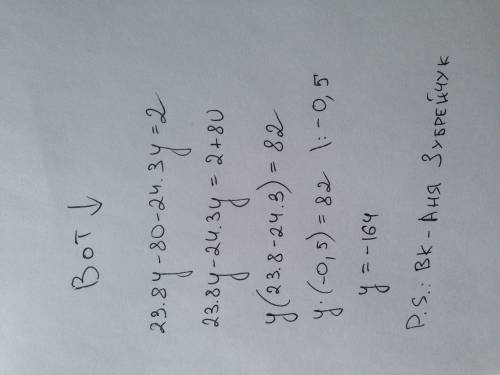 Вот ↓
23.8y-80-24.3y=2
23.8y-24.3y=2+80
y(23.8-24.3)=82
y·(-0,5)=82 |:-0,5
y=-164
P.S.: ВК-Аня Зубрейчук